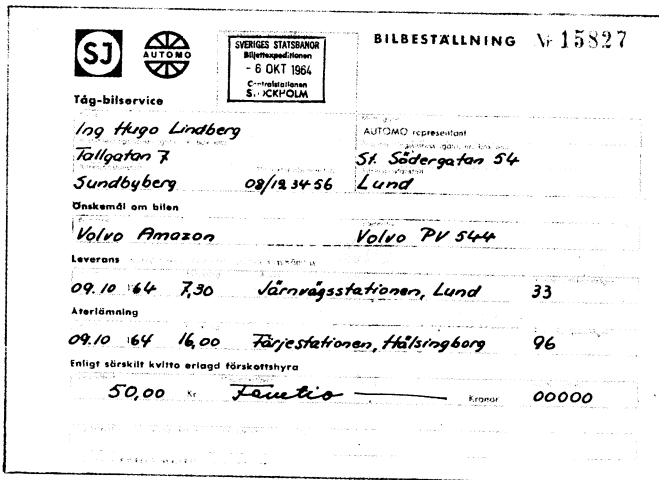 SJ
AUTOMO
SVERIGES STATSBANOR
Biljettexpeditionen
- 6 OKT 1964
Centralstationen
STOCKHOLM
BILBESTÄLLNING Nr 15827
Tåg-bilservice
Ing Hugo Lindberg
AUTOMO representant
Tallgatan 7
St. Södergatan 54
Sundbyberg 08/12 34 56 Lund
Önskemål om bilen
Volvo Amazon Volvo PV 544
Leverans
09.10 64 7,30 Järnvägsstationen, Lund 33
Återlämning
09.10 64 16,00 Färjestationen, Hälsingborg 96
Enligt särskilt kvitto erlagd förskottshyra
50,00 Kr Femtio Kronor 00000